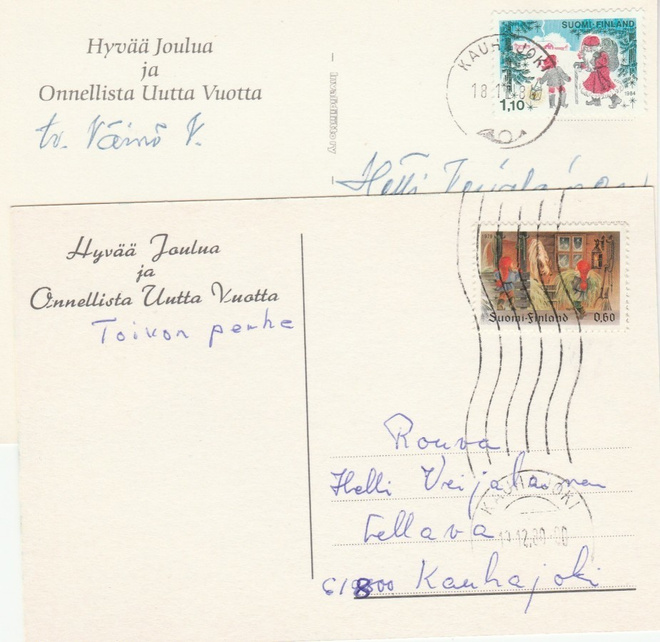 Hyvää Joulua
ja
Onnellista Uutta Vuotta
tv. Väinö V.
SUOMI-FINLAND
1,10
1984
KAUHAJOKI
18.12.84
Helli
Hyvää Joulua
ja
Onnellista Uutta Vuotta
Toivon perhe
Suomi-Finland
0,60
Rouva
Helli
KAUHAJOKI
12.80
61800 Kauhajoki